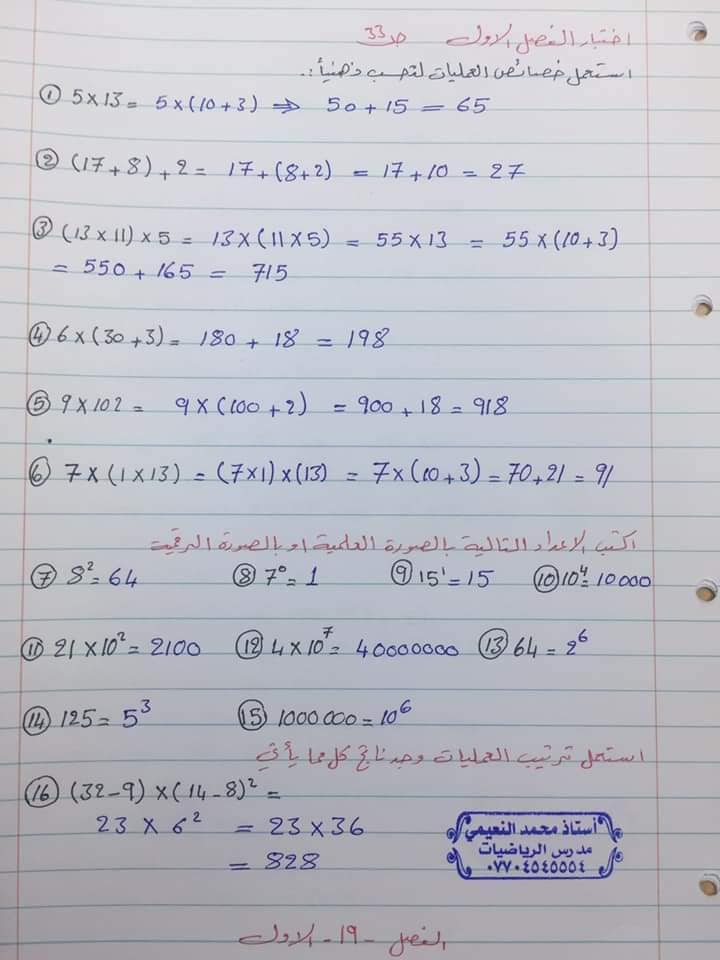 اختبار الفصل الاول ص 33
استعمل خصائص العمليات لتحسب ذهنياً :.
① 5 × 13 = 5 × (10 + 3) ⇒ 50 + 15 = 65
② (17 + 8) + 2 = 17 + (8+2) = 17 + 10 = 27
③ (13 × 11) × 5 = 13 × (11 × 5) = 55 × 13 = 55 × (10 + 3)
= 550 + 165 = 715
④ 6 × (30 + 3) = 180 + 18 = 198
⑤ 9 × 102 = 9 × (100 + 2) = 900 + 18 = 918
⑥ 7 × (1 × 13) = (7×1) × (13) = 7 × (10 + 3) = 70 + 21 = 91
اكتب الاعداد التالية بالصورة العلمية او بالصورة الرقمية
⑦ 8² = 64 ⑧ 7⁰ = 1 ⑨ 15¹ = 15 ⑩ 10⁴ = 10000
⑪ 21 × 10² = 2100 ⑫ 4 × 10⁷ = 40000000 ⑬ 64 = 2⁶
⑭ 125 = 5³ ⑮ 1000000 = 10⁶
استعمل ترتيب العمليات وجد ناتج كل مما يأتي
⑯ (32 – 9) × (14 – 8)² =
23 × 6² = 23 × 36
= 828
أستاذ محمد النعيمي
مدرس الرياضيات
٠٧٧٠٤٥٤٥٥٥٤
الفصل - ١٩ - الاول